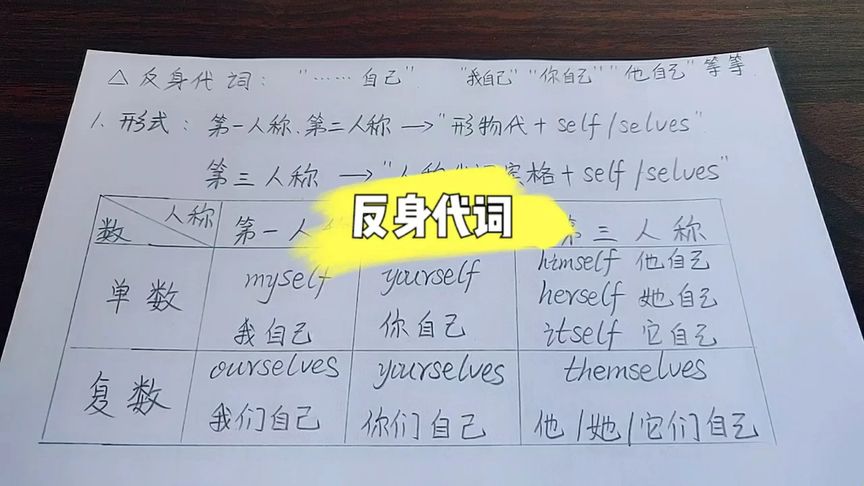 △ 反身代词： "……自己" "我自己" "你自己" "他自己" 等等
1. 形式： 第一人称、第二人称 → "形物代 + self/selves"
第三人称 → "人称代词宾格 + self/selves"
反身代词
数 人称 第一人称 第三人称
单数 myself 我自己 yourself 你自己 himself 他自己
herself 她自己
itself 它自己
复数 ourselves yourselves themselves
我们自己 你们自己 他/她/它们自己